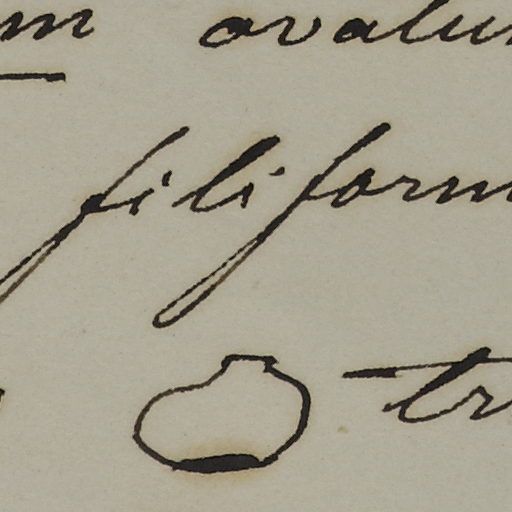 m ovalu
filiform
tr